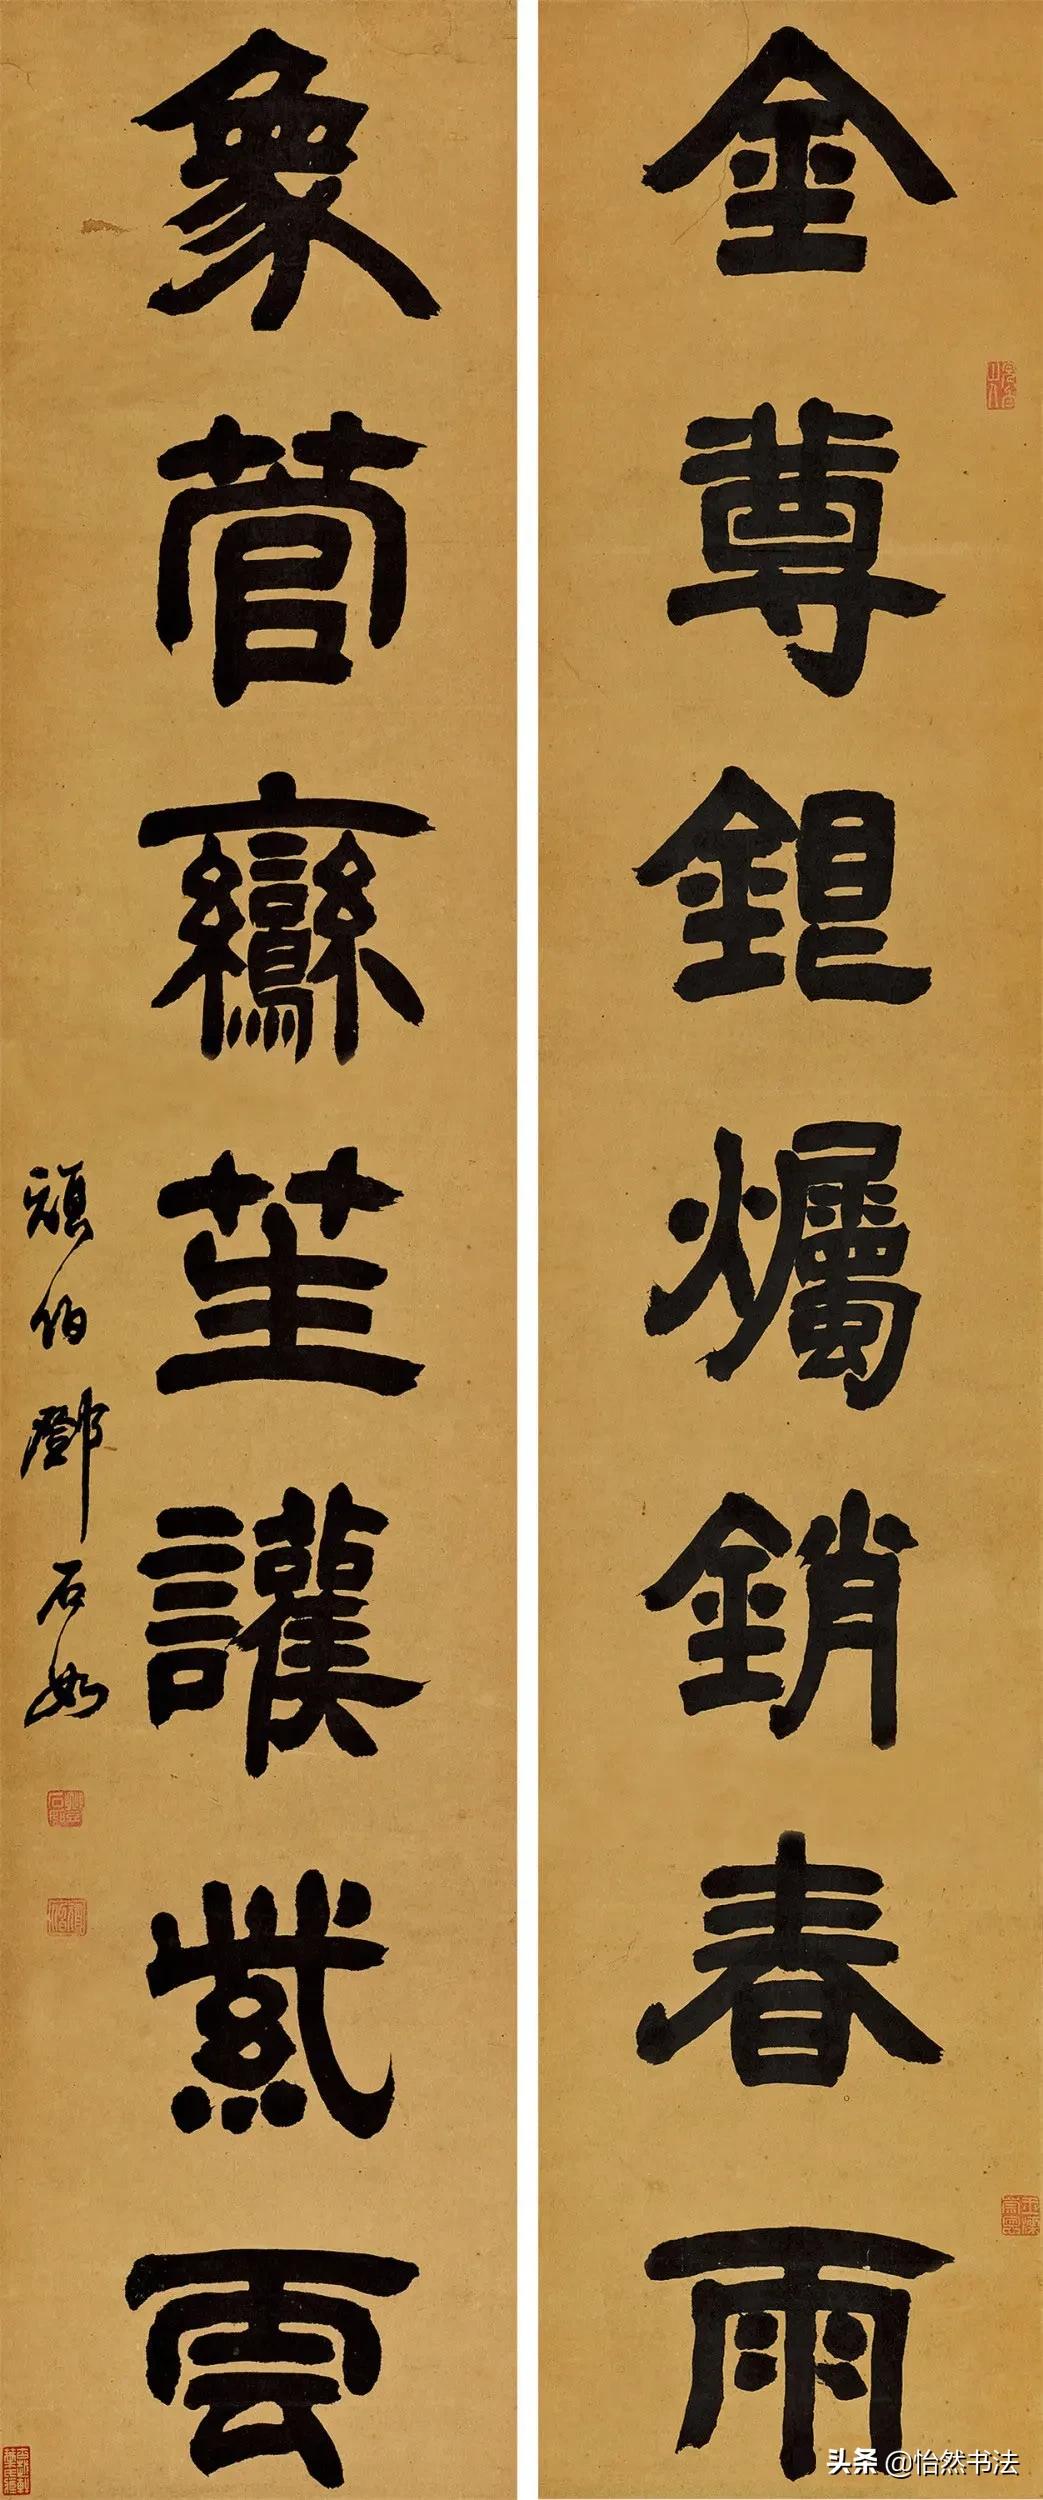 金尊銀燭銷春雨
象管鸞笙護紫雲
頑伯鄧石如
頭条 @怡然书法